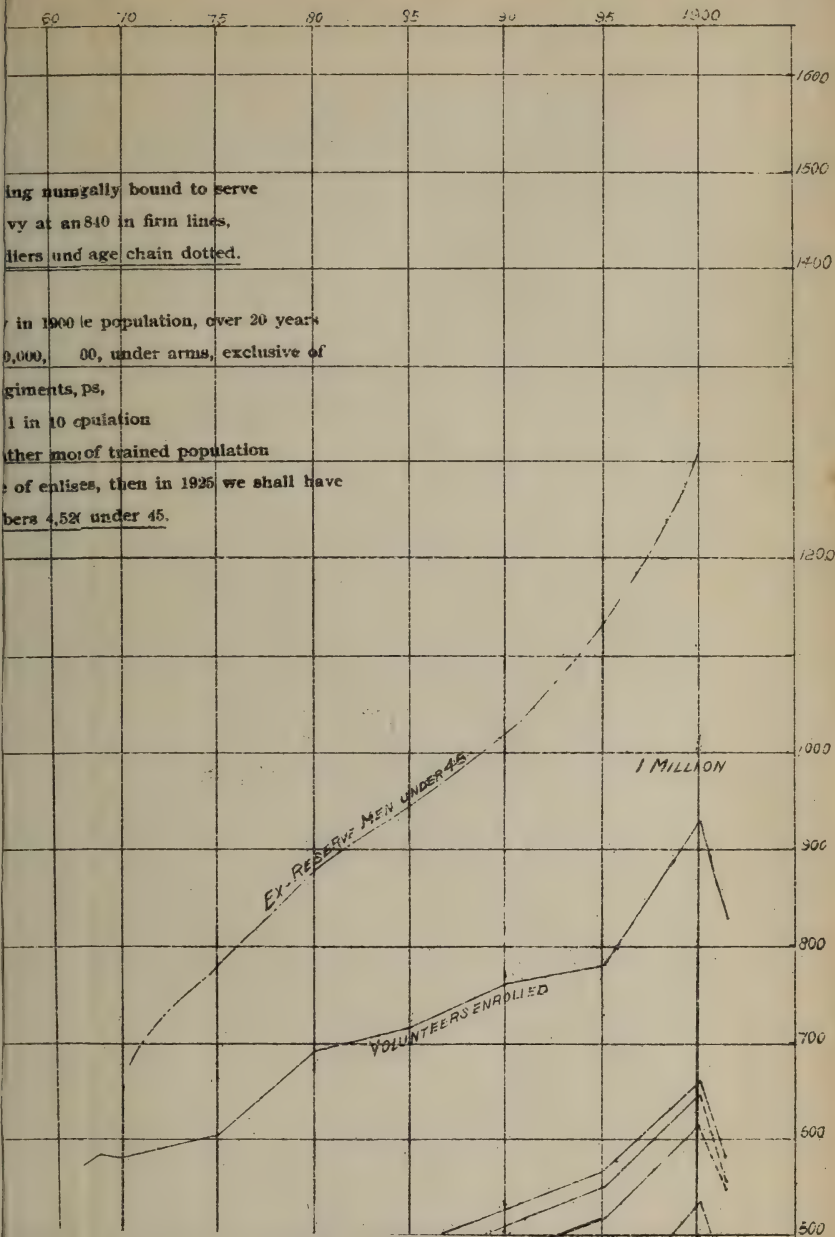 60 70 75 80 85 90 95 1900
1600
1500
ing numgally bound to serve
vy at an 840 in firm lines,
lliers und age chain dotted.
1400
in 1900 le population, over 20 years
0,000, 00, under arms, exclusive of
giments, ps,
1 in 10 opulation
ther mo: of trained population
of enlises, then in 1925 we shall have
bers 4,52 under 45.
1200
1000
1 MILLION
EX-RESERVE MEN UNDER 45
900
800
VOLUNTEERS ENROLLED
700
600
500